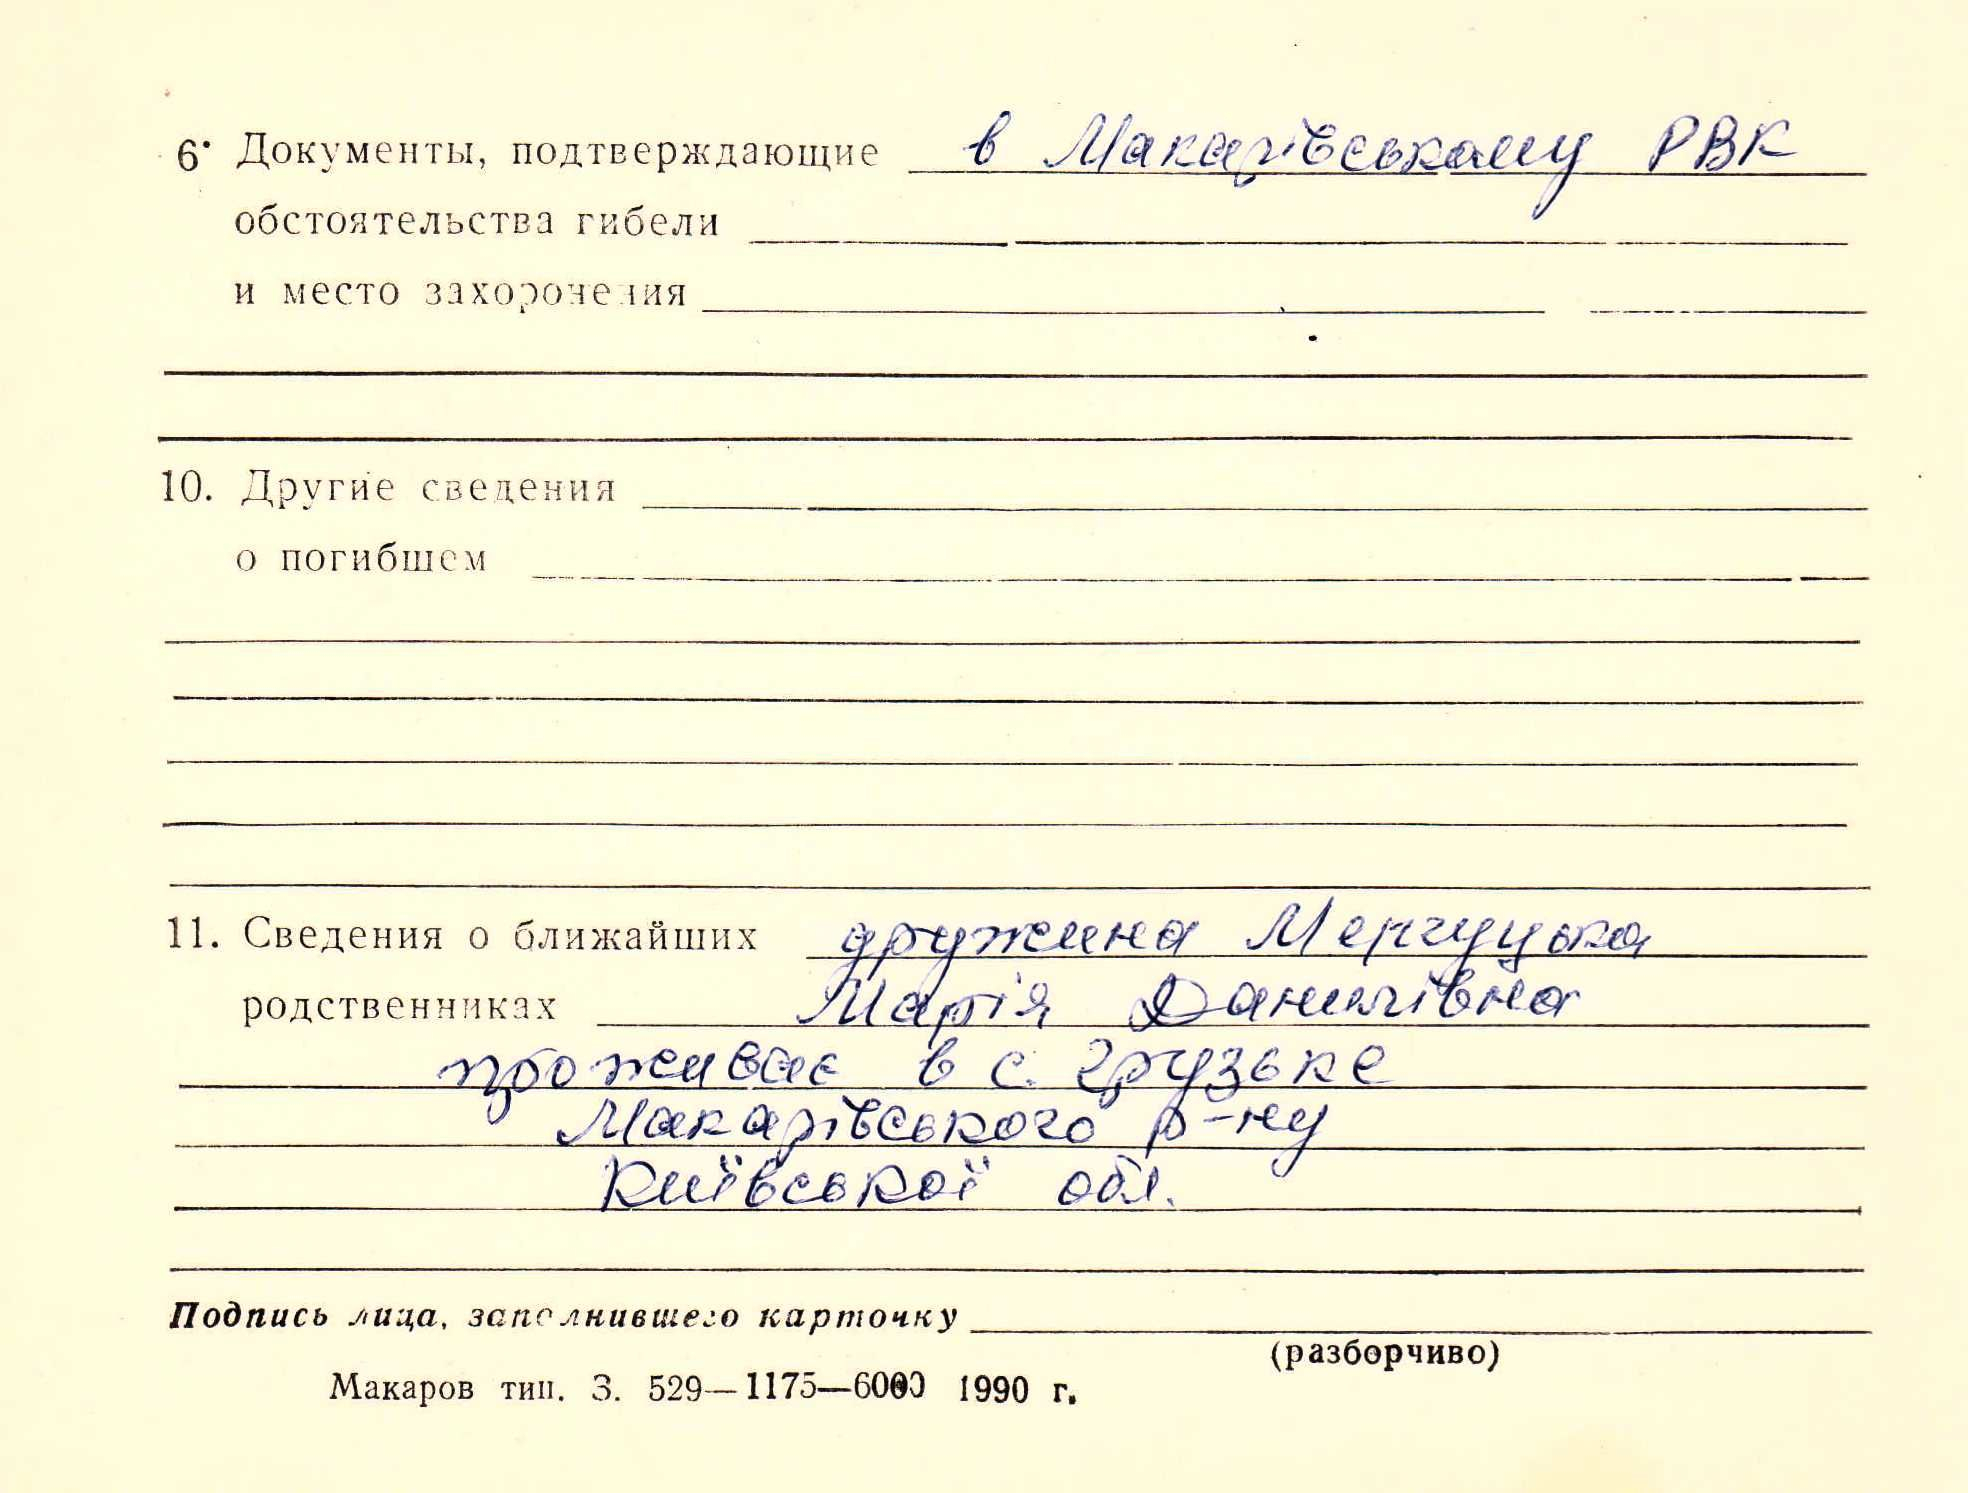 6. Документы, подтверждающие в Макарівському РВК
обстоятельства гибели
и место захоронения
10. Другие сведения
о погибшем
11. Сведения о ближайших дружина Мергуцька
родственниках Марія Данилівна
проживає в с. Грузьке
Макарівського р-ну
Київської обл.
Подпись лица, заполнившего карточку
(разборчиво)
Макаров тип. З. 529—1175—6000 1990 г.